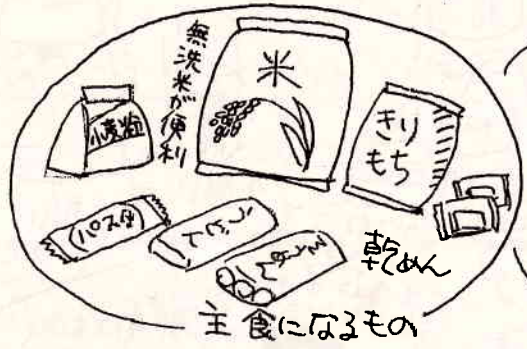 無洗米が便利
米
小麦粉
きり
もち
パスタ
うどん
そうめん
乾めん
主食になるもの